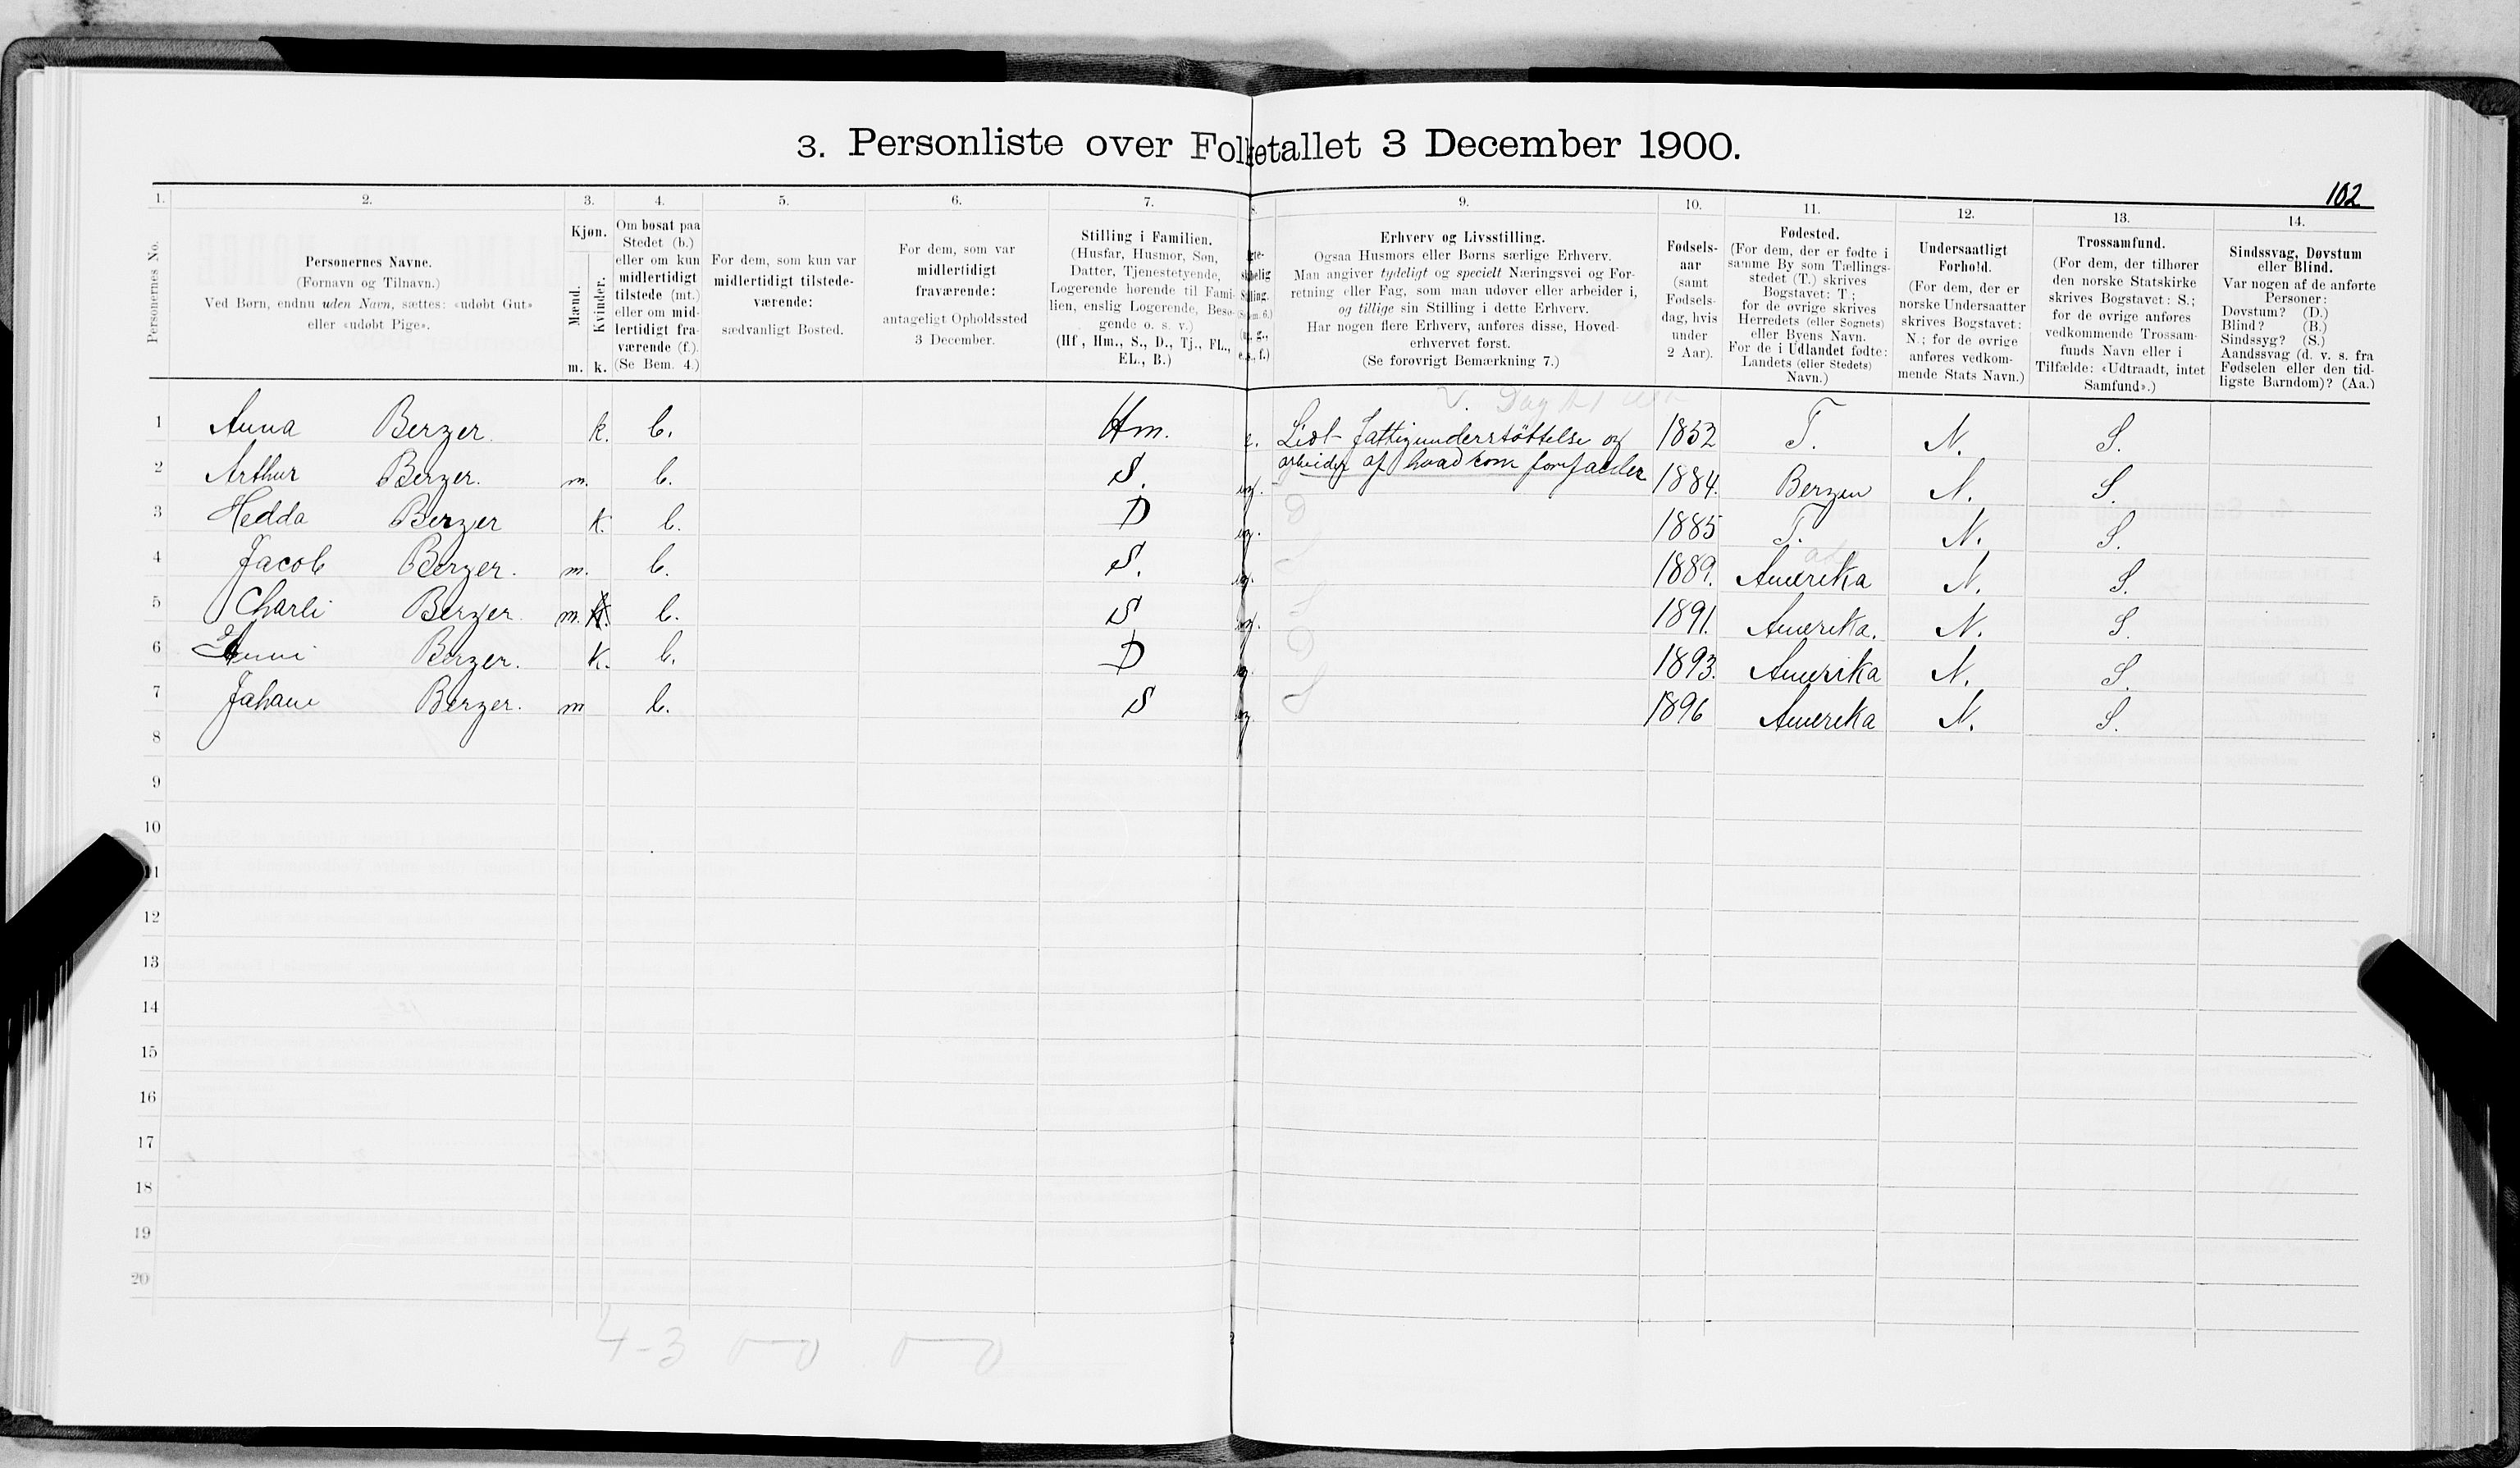 3. Personliste over Folketallet 3 December 1900.
102
1. 2. 3. 4. 5. 6. 7. 8. 9. 10. 11. 12. 13. 14.
Personernes No.
Personernes Navne.
(Fornavn og Tilnavn.)
Ved Børn, endnu uden Navn, sættes: «udøbt Gut»
eller «udøbt Pige».
Kjøn.
Mænd.
Kvinder.
m. k.
Om bosat paa
Stedet (b.)
eller om kun
midlertidigt
tilstede (mt.)
eller om mid-
lertidigt fra-
værende (f.).
(Se Bem. 4.)
For dem, som kun var
midlertidigt tilstede-
værende:
sædvanligt Bosted.
For dem, som var
midlertidigt
fraværende:
antageligt Opholdssted
3 December.
Stilling i Familien.
(Husfar, Husmor, Søn,
Datter, Tjenestetyende,
Logerende hørende til Fami-
lien, enslig Logerende, Besø-
gende o. s. v.)
(Hf., Hm., S., D., Tj., FL.,
EL., B.)
Erhverv og Livsstilling.
Ogsaa Husmors eller Børns særlige Erhverv.
Man angiver tydeligt og specielt Næringsvei og For-
retning eller Fag, som man udøver eller arbeider i,
og tillige sin Stilling i dette Erhverv.
Har nogen flere Erhverv, anføres disse, Hoved-
erhvervet først.
(Se forøvrigt Bemærkning 7.)
Fødsels-
aar
(samt
Fødsels-
dag, hvis
under
2 Aar).
Fødested.
(For dem, der er fødte i
samme By som Tællings-
stedet (T.) skrives
Bogstavet: T.;
for de øvrige skrives
Herredets (eller Sognets)
eller Byens Navn.
For de i Udlandet fødte:
Landets (eller Stedets)
Navn.)
Undersaatligt
Forhold.
(For dem, der er
norske Undersaatter
skrives Bogstavet:
N.; for de øvrige
anføres vedkom-
mende Stats Navn.)
Trossamfund.
(For dem, der tilhører
den norske Statskirke
skrives Bogstavet: S.;
for de øvrige anføres
vedkommende Trossam-
funds Navn eller i
Tilfælde: «Udtraadt, intet
Samfund».)
Sindssvag, Døvstum
eller Blind.
Var nogen af de anførte
Personer:
Døvstum? (D.)
Blind? (B.)
Sindssyg? (S.)
Aandssvag (d. v. s. fra
Fødselen eller den tid-
ligste Barndom)? (Aa.)
1 Anna Berger. k. b. Hm. e. fattigunderstöttelse og 1852 T. N. S.
arbeider af hvad som forefalder
2 Arthur Berger. m. b. S. ug. 1884. Bergen N. S.
3 Hedda Berger k. b. D ug. 1885 T. N. S.
4 Jacob Berger. m. b. S. ug. 1889. Amerika N. S.
5 Charli Berger. m. k. b. S ug. 1891. Amerika. N. S.
6 Berger. k. b. D ug. 1893. Amerika N. S.
7 Johan Berger. m b. S ug 1896 Amerika N. S.
8
9
10
11
12
13
14
15
16
17
18
19
20
4-3 0-0 0-0